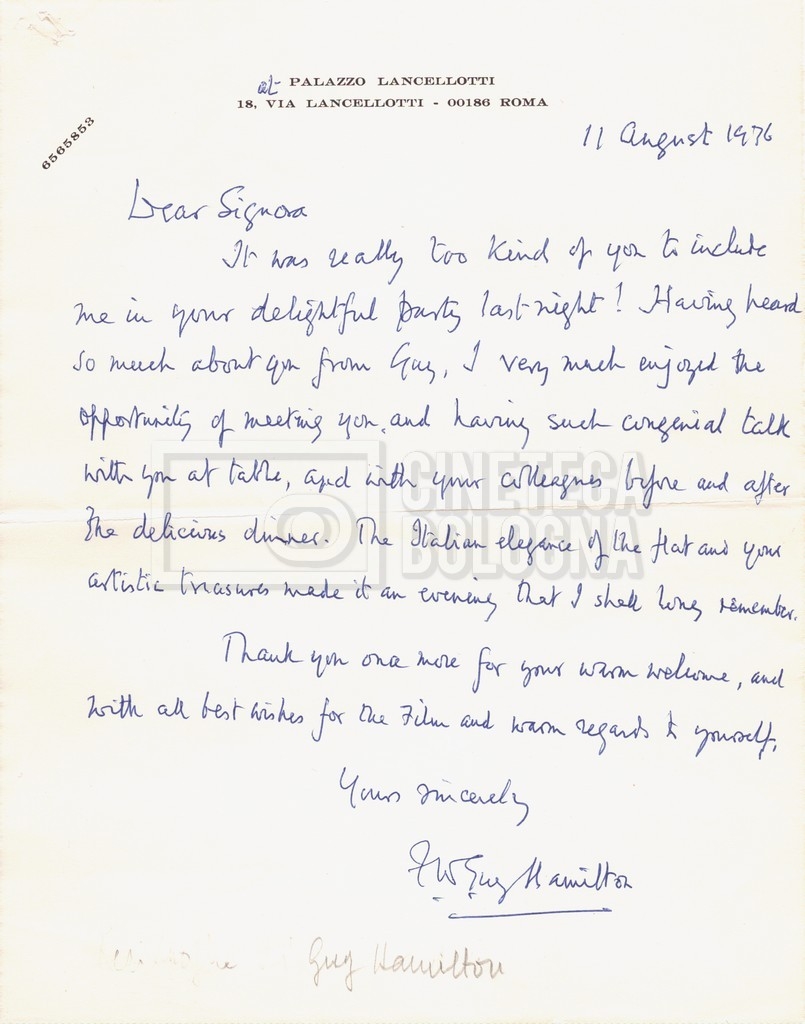 at PALAZZO LANCELLOTTI
18, VIA LANCELLOTTI - 00186 ROMA
6565853
11 August 1976
Dear Signora
It was really too kind of you to include
me in your delightful party last night! Having heard
so much about you from Guy, I very much enjoyed the
opportunity of meeting you, and having such congenial talk
with you at table, and with your colleagues before and after
the delicious dinner. The Italian elegance of the flat and your
artistic treasures made it an evening that I shall long remember.
Thank you once more for your warm welcome, and
with all best wishes for the Film and warm regards to yourself,
Yours sincerely
F.W. Guy Hamilton
Guy Hamilton
CINETECA
BOLOGNA